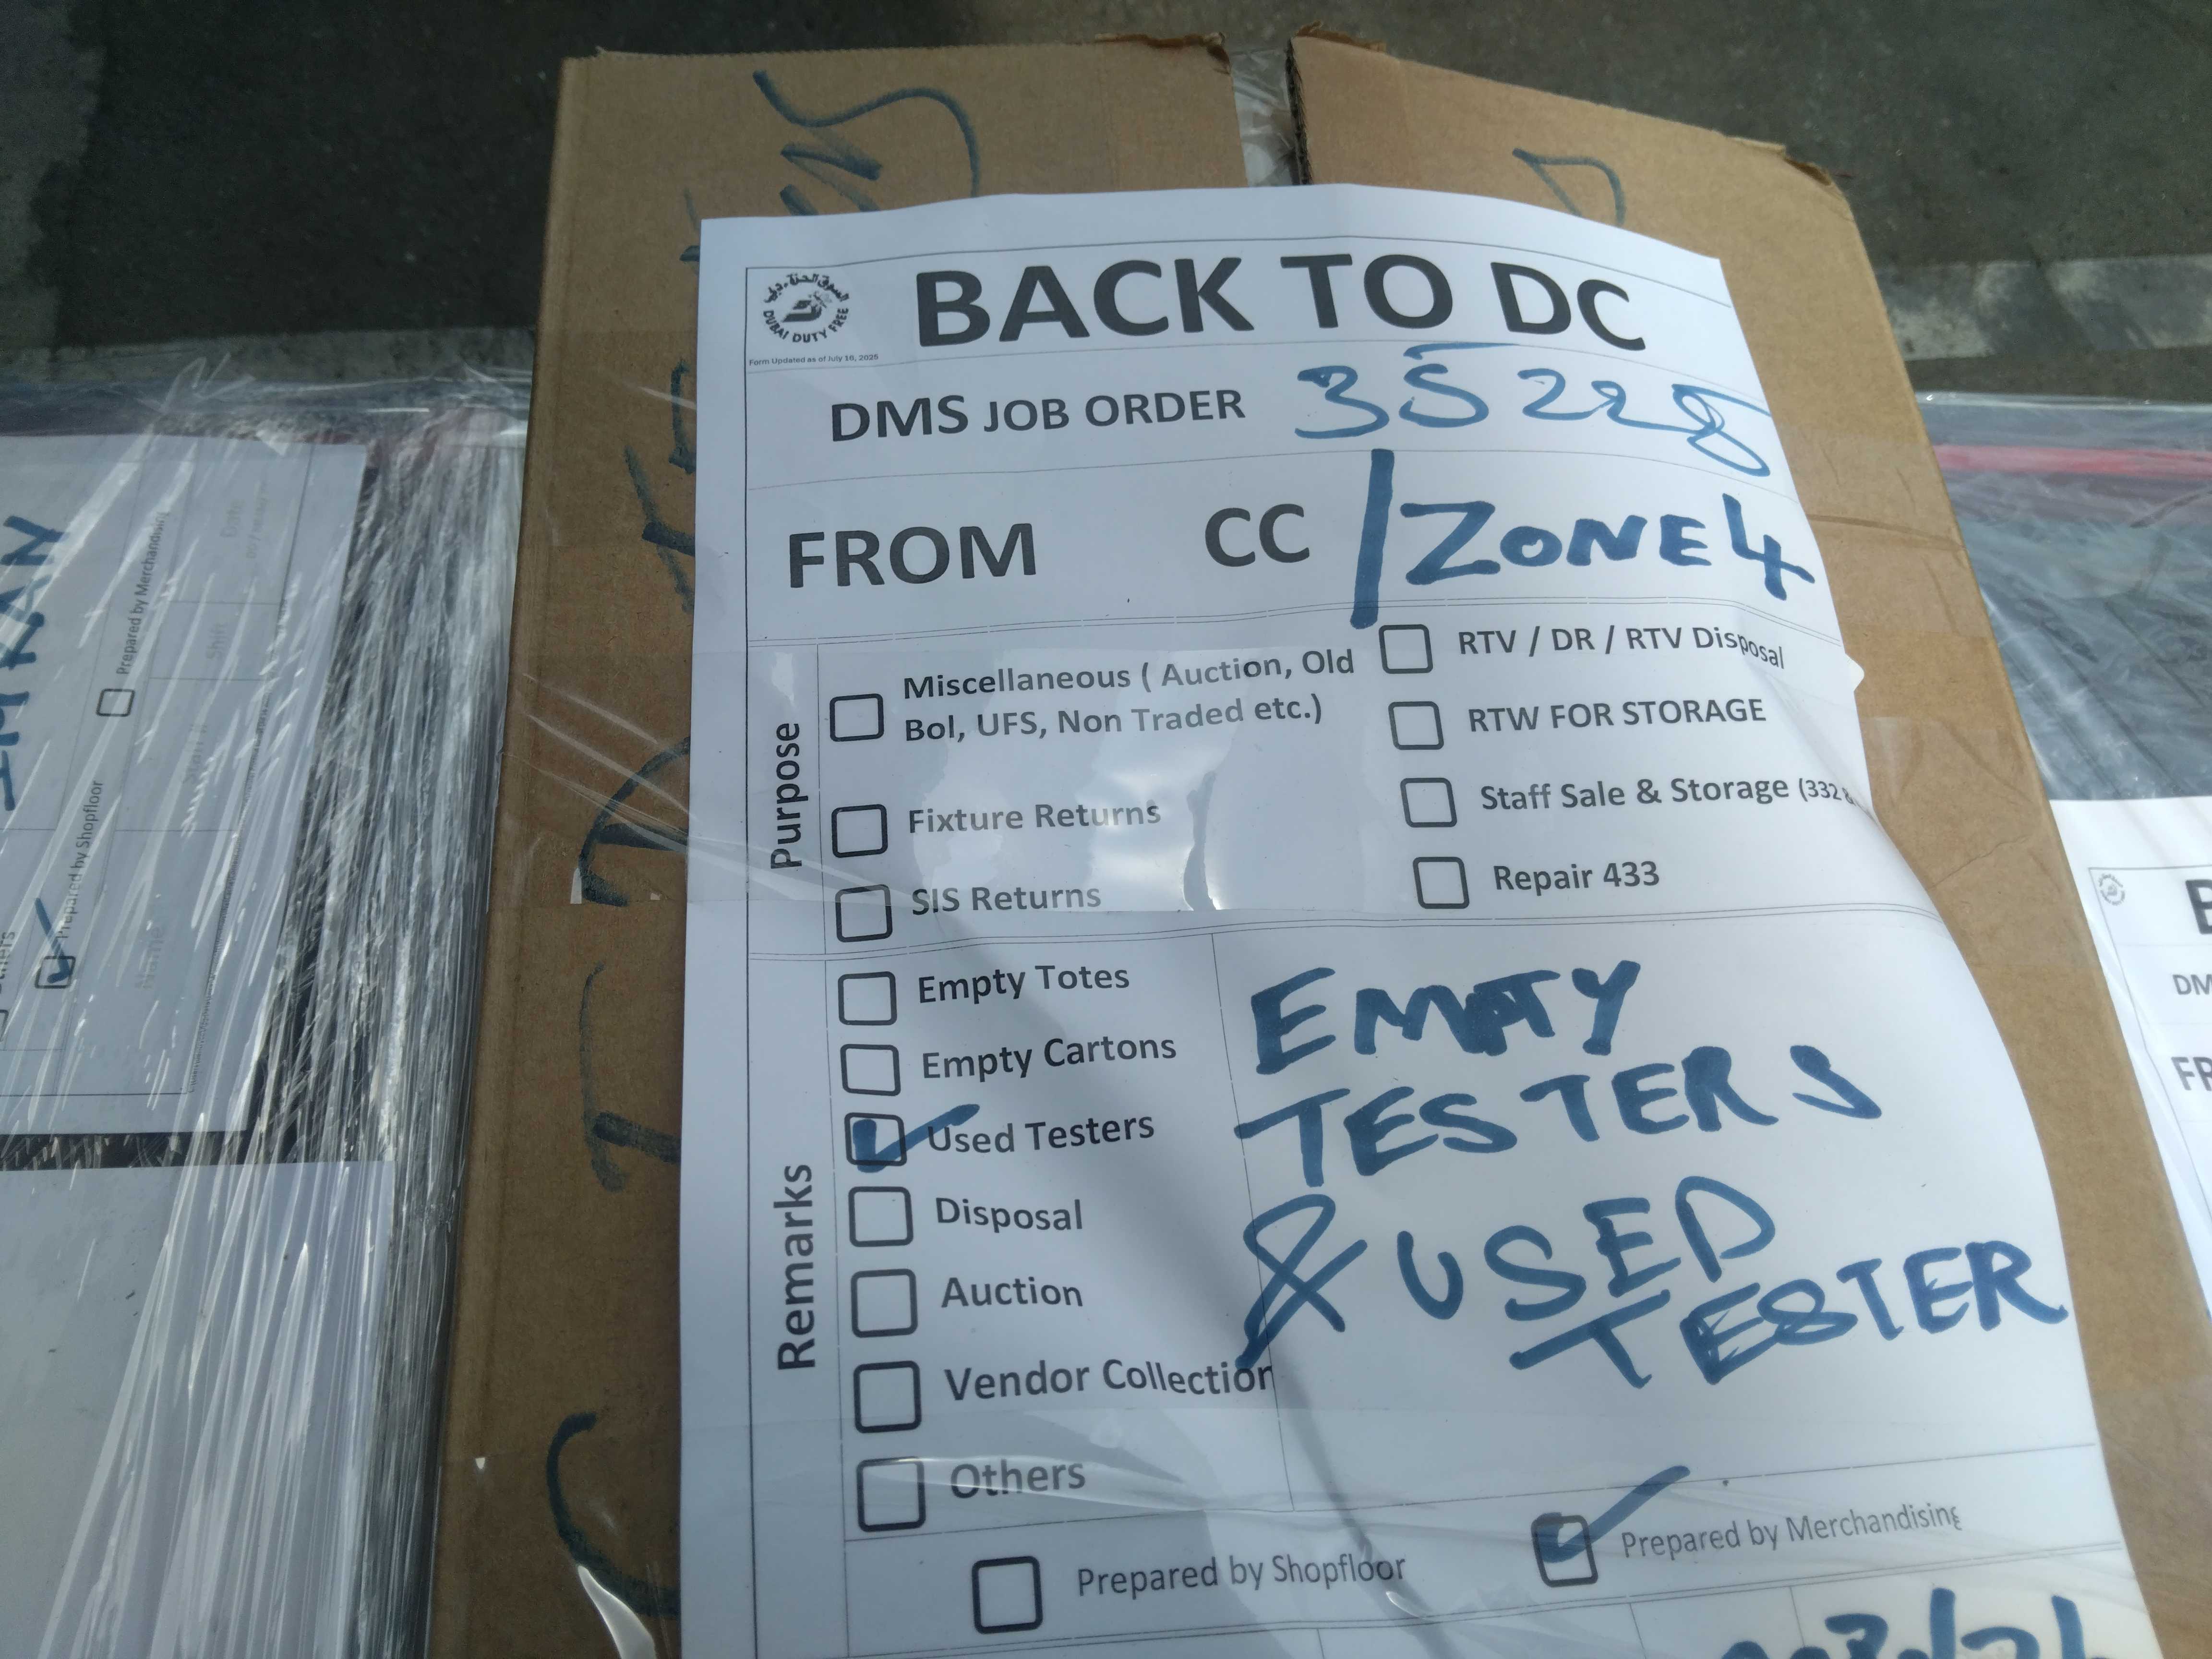 السوق الحرة - دبي
DUBAI DUTY FREE
BACK TO DC
Form Updated as of July 10, 2025
DMS JOB ORDER 35228
FROM CC / ZONE 4
Purpose
Miscellaneous ( Auction, Old
Bol, UFS, Non Traded etc.)
Fixture Returns
SIS Returns
RTV / DR / RTV Disposal
RTW FOR STORAGE
Staff Sale & Storage (332 &
Repair 433
Remarks
Empty Totes
Empty Cartons
Used Testers
Disposal
Auction
Vendor Collection
Others
EMPTY
TESTERS
& USED
TESTER
Prepared by Shopfloor
Prepared by Merchandising
Prepared by Merchandising
Prepared by Shopfloor
Date
Shift
Name
DM